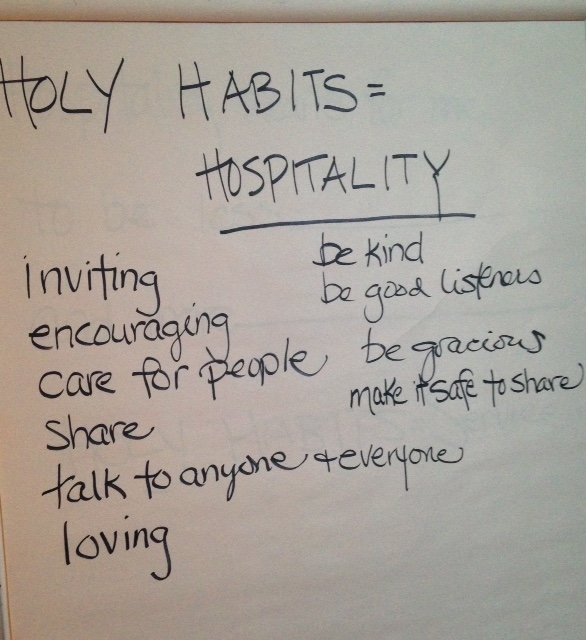 HOLY HABITS =
HOSPITALITY
inviting
encouraging
care for people
share
talk to anyone + everyone
loving
be kind
be good listeners
be gracious
make it safe to share